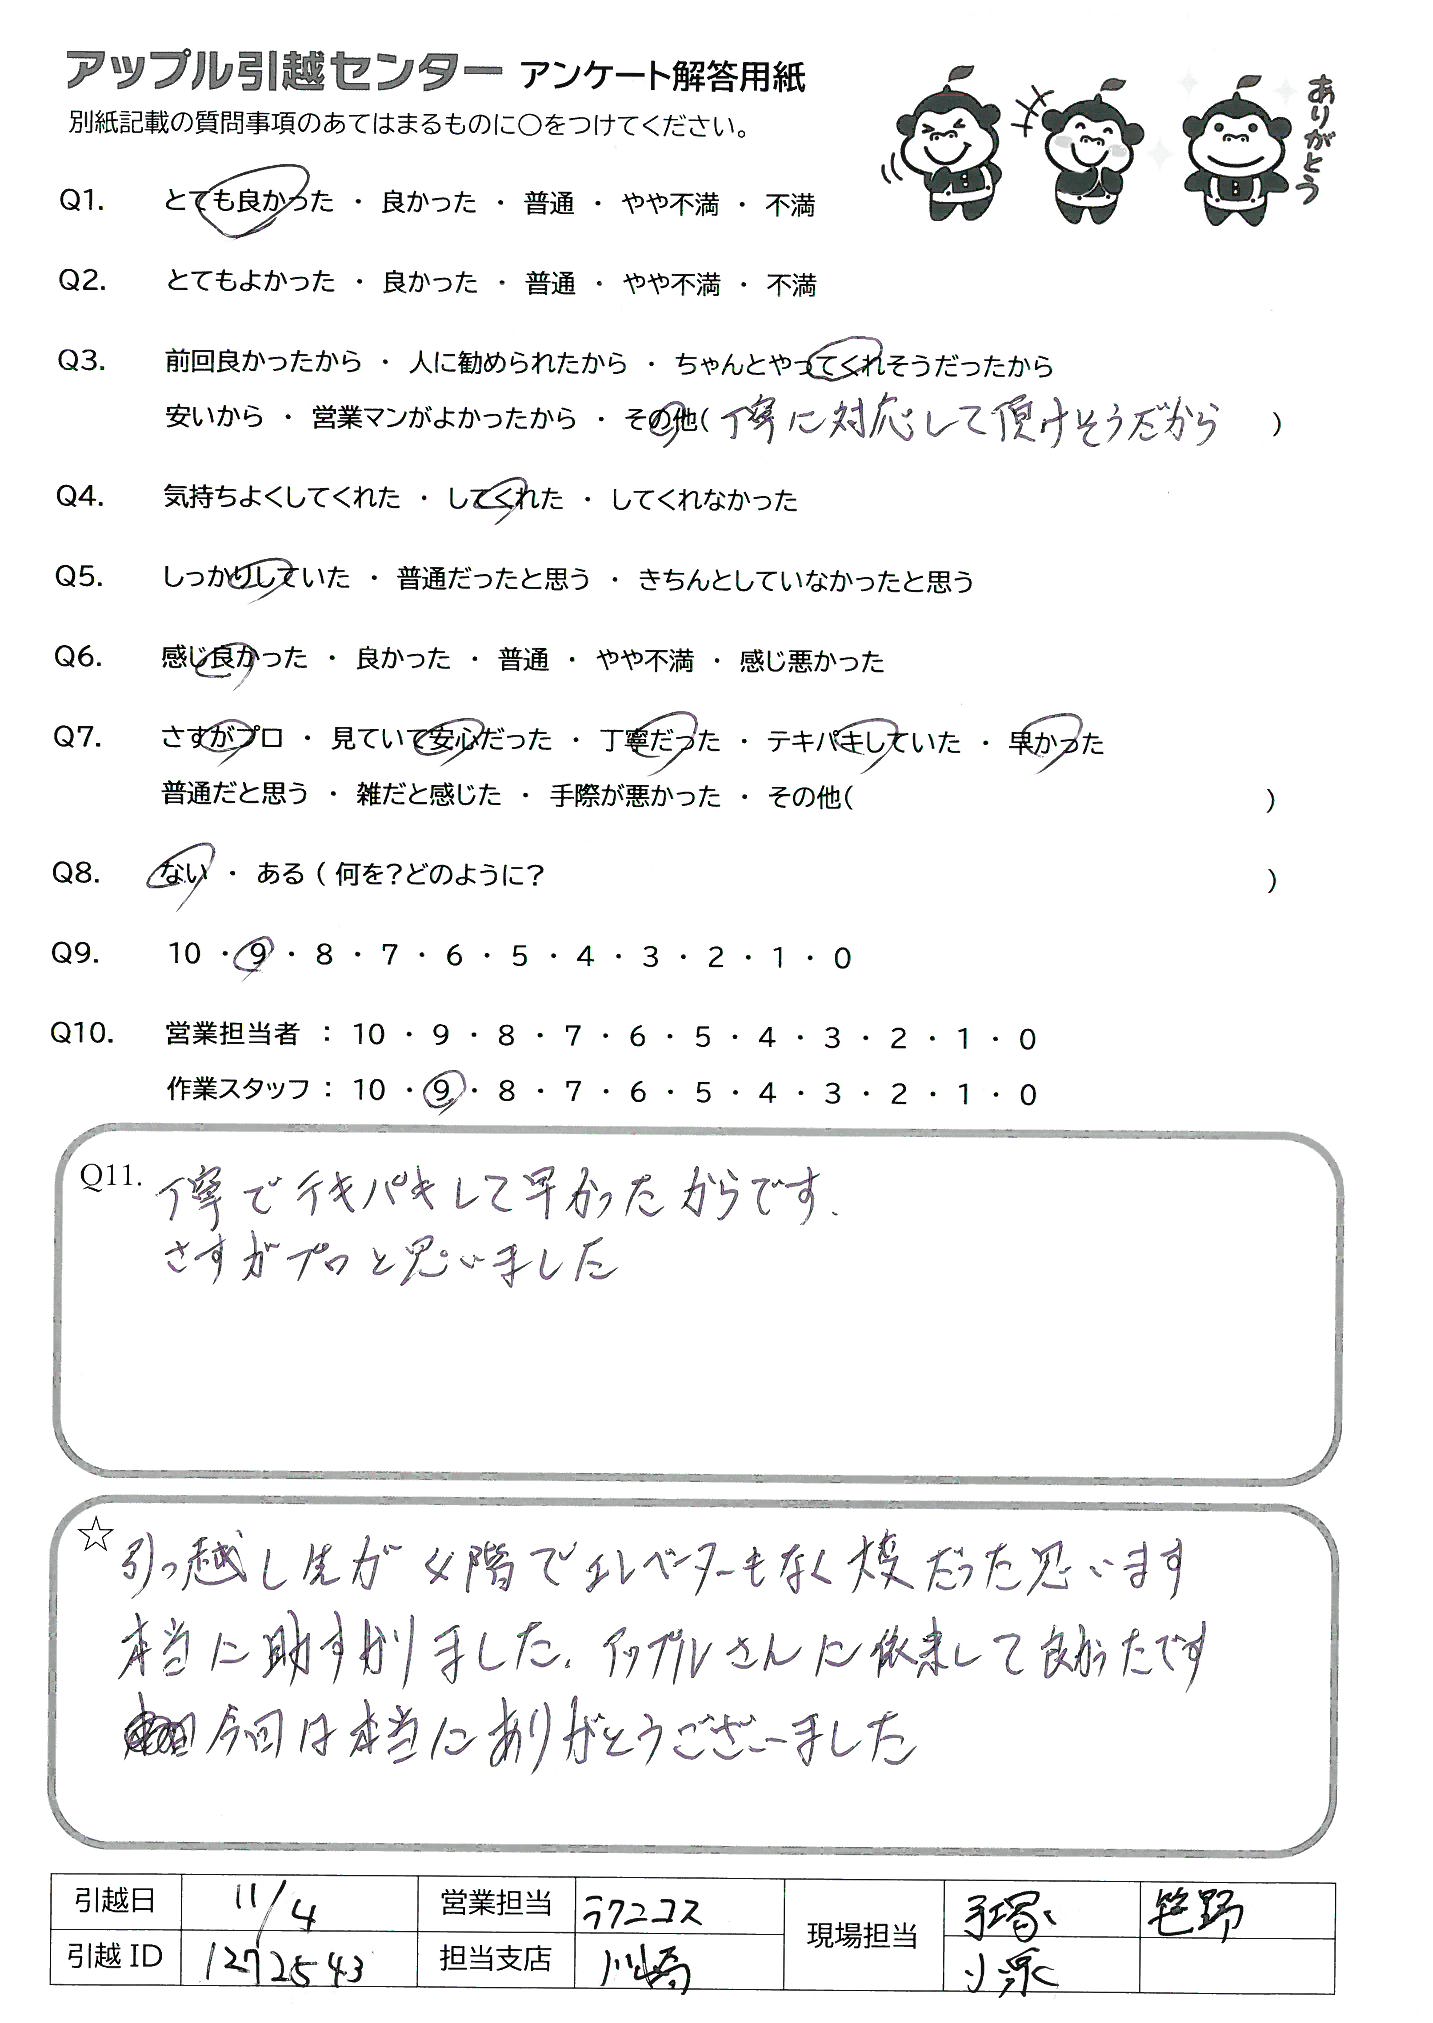 アップル引越センター アンケート解答用紙
別紙記載の質問事項のあてはまるものに〇をつけてください。
ありがとう
Q1. とても良かった ・ 良かった ・ 普通 ・ やや不満 ・ 不満
Q2. とてもよかった ・ 良かった ・ 普通 ・ やや不満 ・ 不満
Q3. 前回良かったから ・ 人に勧められたから ・ ちゃんとやってくれそうだったから
安いから ・ 営業マンがよかったから ・ その他( 丁寧に対応して頂けそうだから )
Q4. 気持ちよくしてくれた ・ してくれた ・ してくれなかった
Q5. しっかりしていた ・ 普通だったと思う ・ きちんとしていなかったと思う
Q6. 感じ良かった ・ 良かった ・ 普通 ・ やや不満 ・ 感じ悪かった
Q7. さすがプロ ・ 見ていて安心だった ・ 丁寧だった ・ テキパキしていた ・ 早かった
普通だと思う ・ 雑だと感じた ・ 手際が悪かった ・ その他( )
Q8. ない ・ ある ( 何を?どのように? )
Q9. 10 ・ 9 ・ 8 ・ 7 ・ 6 ・ 5 ・ 4 ・ 3 ・ 2 ・ 1 ・ 0
Q10. 営業担当者 : 10 ・ 9 ・ 8 ・ 7 ・ 6 ・ 5 ・ 4 ・ 3 ・ 2 ・ 1 ・ 0
作業スタッフ : 10 ・ 9 ・ 8 ・ 7 ・ 6 ・ 5 ・ 4 ・ 3 ・ 2 ・ 1 ・ 0
Q11. 丁寧でテキパキして早かったからです.
さすがプロと思いました
☆ 引っ越し先が4階でエレベーターもなく大変だった思います
本当に助すかりました. アップルさんに依来して良かったです
今回は本当にありがとうございました
引越日 11/4 営業担当 ラクニコス 現場担当 手塚 笹野
引越ID 1272543 担当支店 川崎 小泳